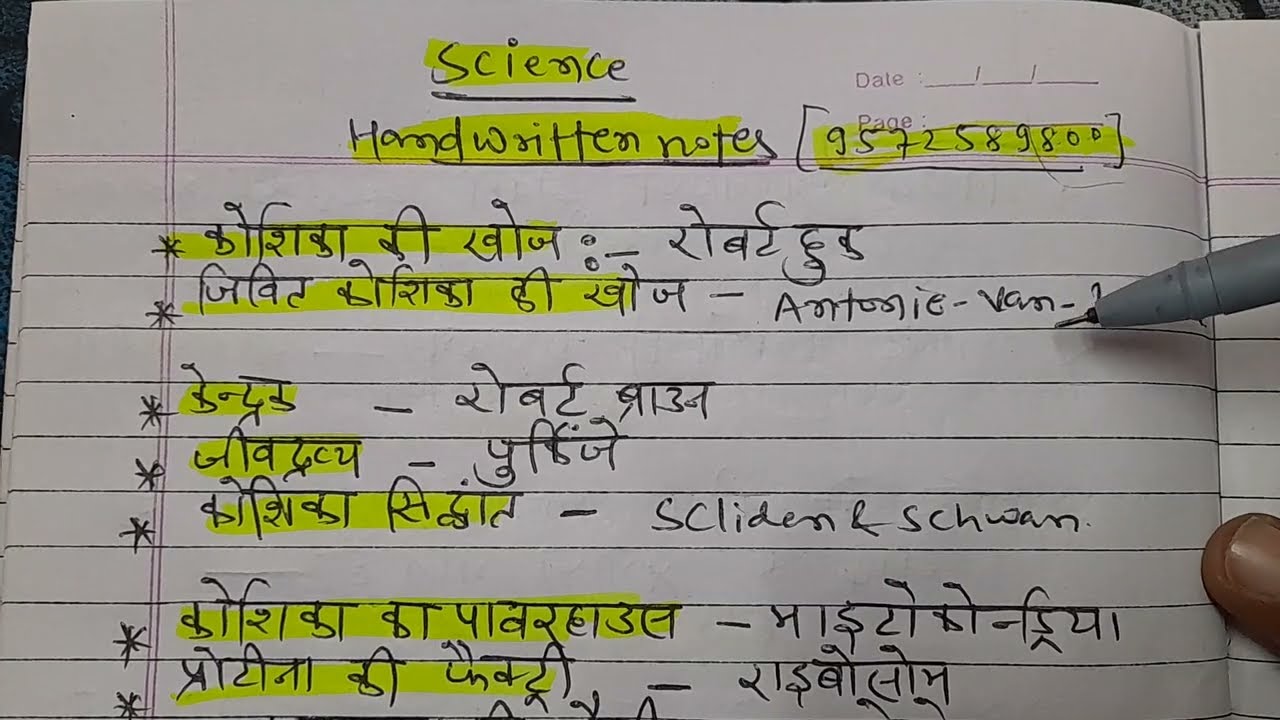 Science
Date : __/__/__
Page :
Handwritten notes [9572589800]
* कोशिका की खोज :- रोबर्ट हुक
* जिवित कोशिका की खोज - Antonie-Van-
* केन्द्रक - रोबर्ट ब्राउन
* जीवद्रव्य - पुर्किंजे
* कोशिका सिद्धांत - Scliden & Schwan.
* कोशिका का पावरहाउस - माइटोकोन्ड्रिया
* प्रोटीना की फैक्ट्री - राइबोसोम
*